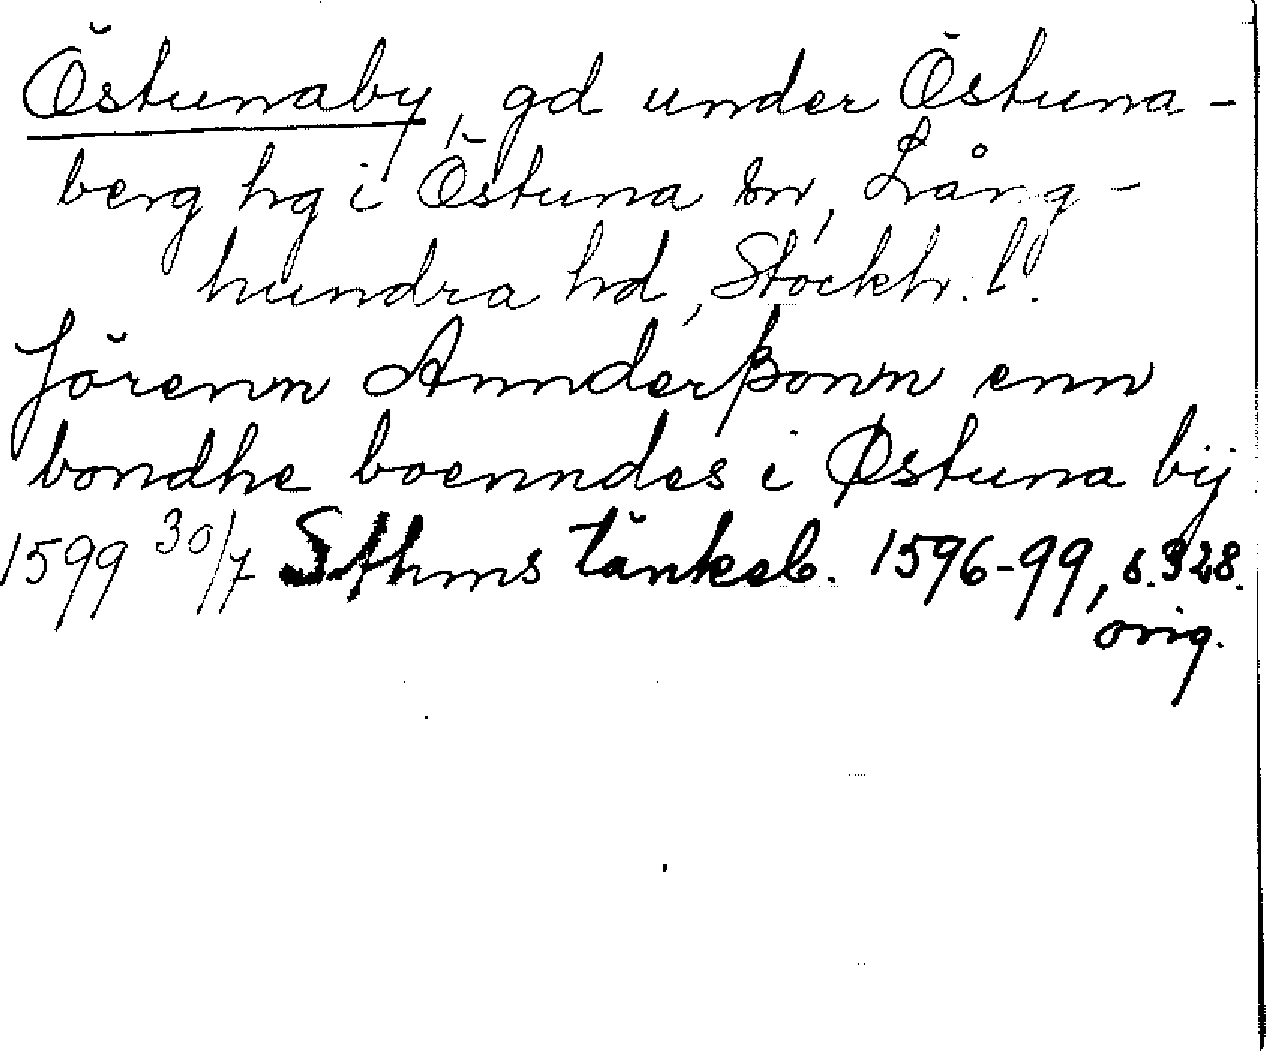 Östunaby, gd under Östuna-
berg hg i Östuna sn, Lång-
hundra hd, Stockh. l.
Jörenn Annderßonn enn
bondhe boenndes i Østuna bij
1599 30/7 Sthms tänkeb. 1596-99, s. 328.
orig.